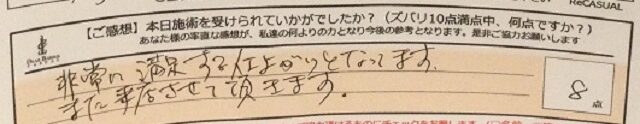 ReCASUAL
【ご感想】本日施術を受けられていかがでしたか？（ズバリ10点満点中、何点ですか？）
あなた様の率直な感想が、私達の何よりの力となり今後の参考となります。是非ご協力お願いします
非常に満足する仕上がりとなってます。
また来店させて頂きます。
8
点